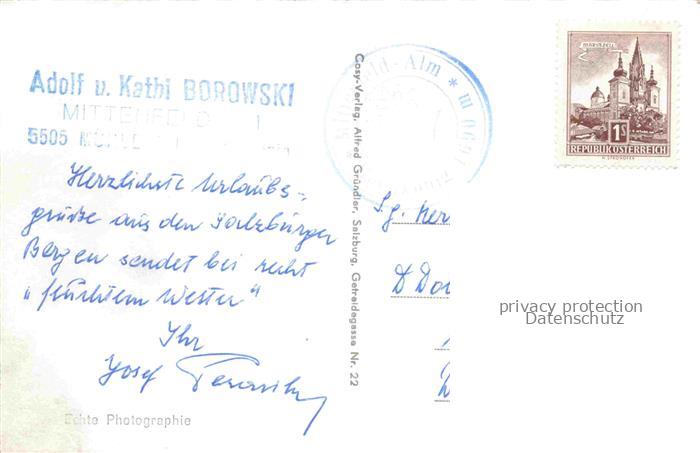 Adolf u. Kathi BOROWSKI
MITTENFELD
5505 MÜHL
Herzlichste Urlaubs-
grüße aus den Salzburger
Bergen sendet bei recht
„feuchtem Wetter“
Ihr
Josef
Echte Photographie
Cosy-Verlag, Alfred Gründler, Salzburg, Getreidegasse Nr. 22
feld-Alm * m 0691
MARIAZELL
1S
REPUBLIK ÖSTERREICH
S.g. Her
D Do
privacy protection
Datenschutz